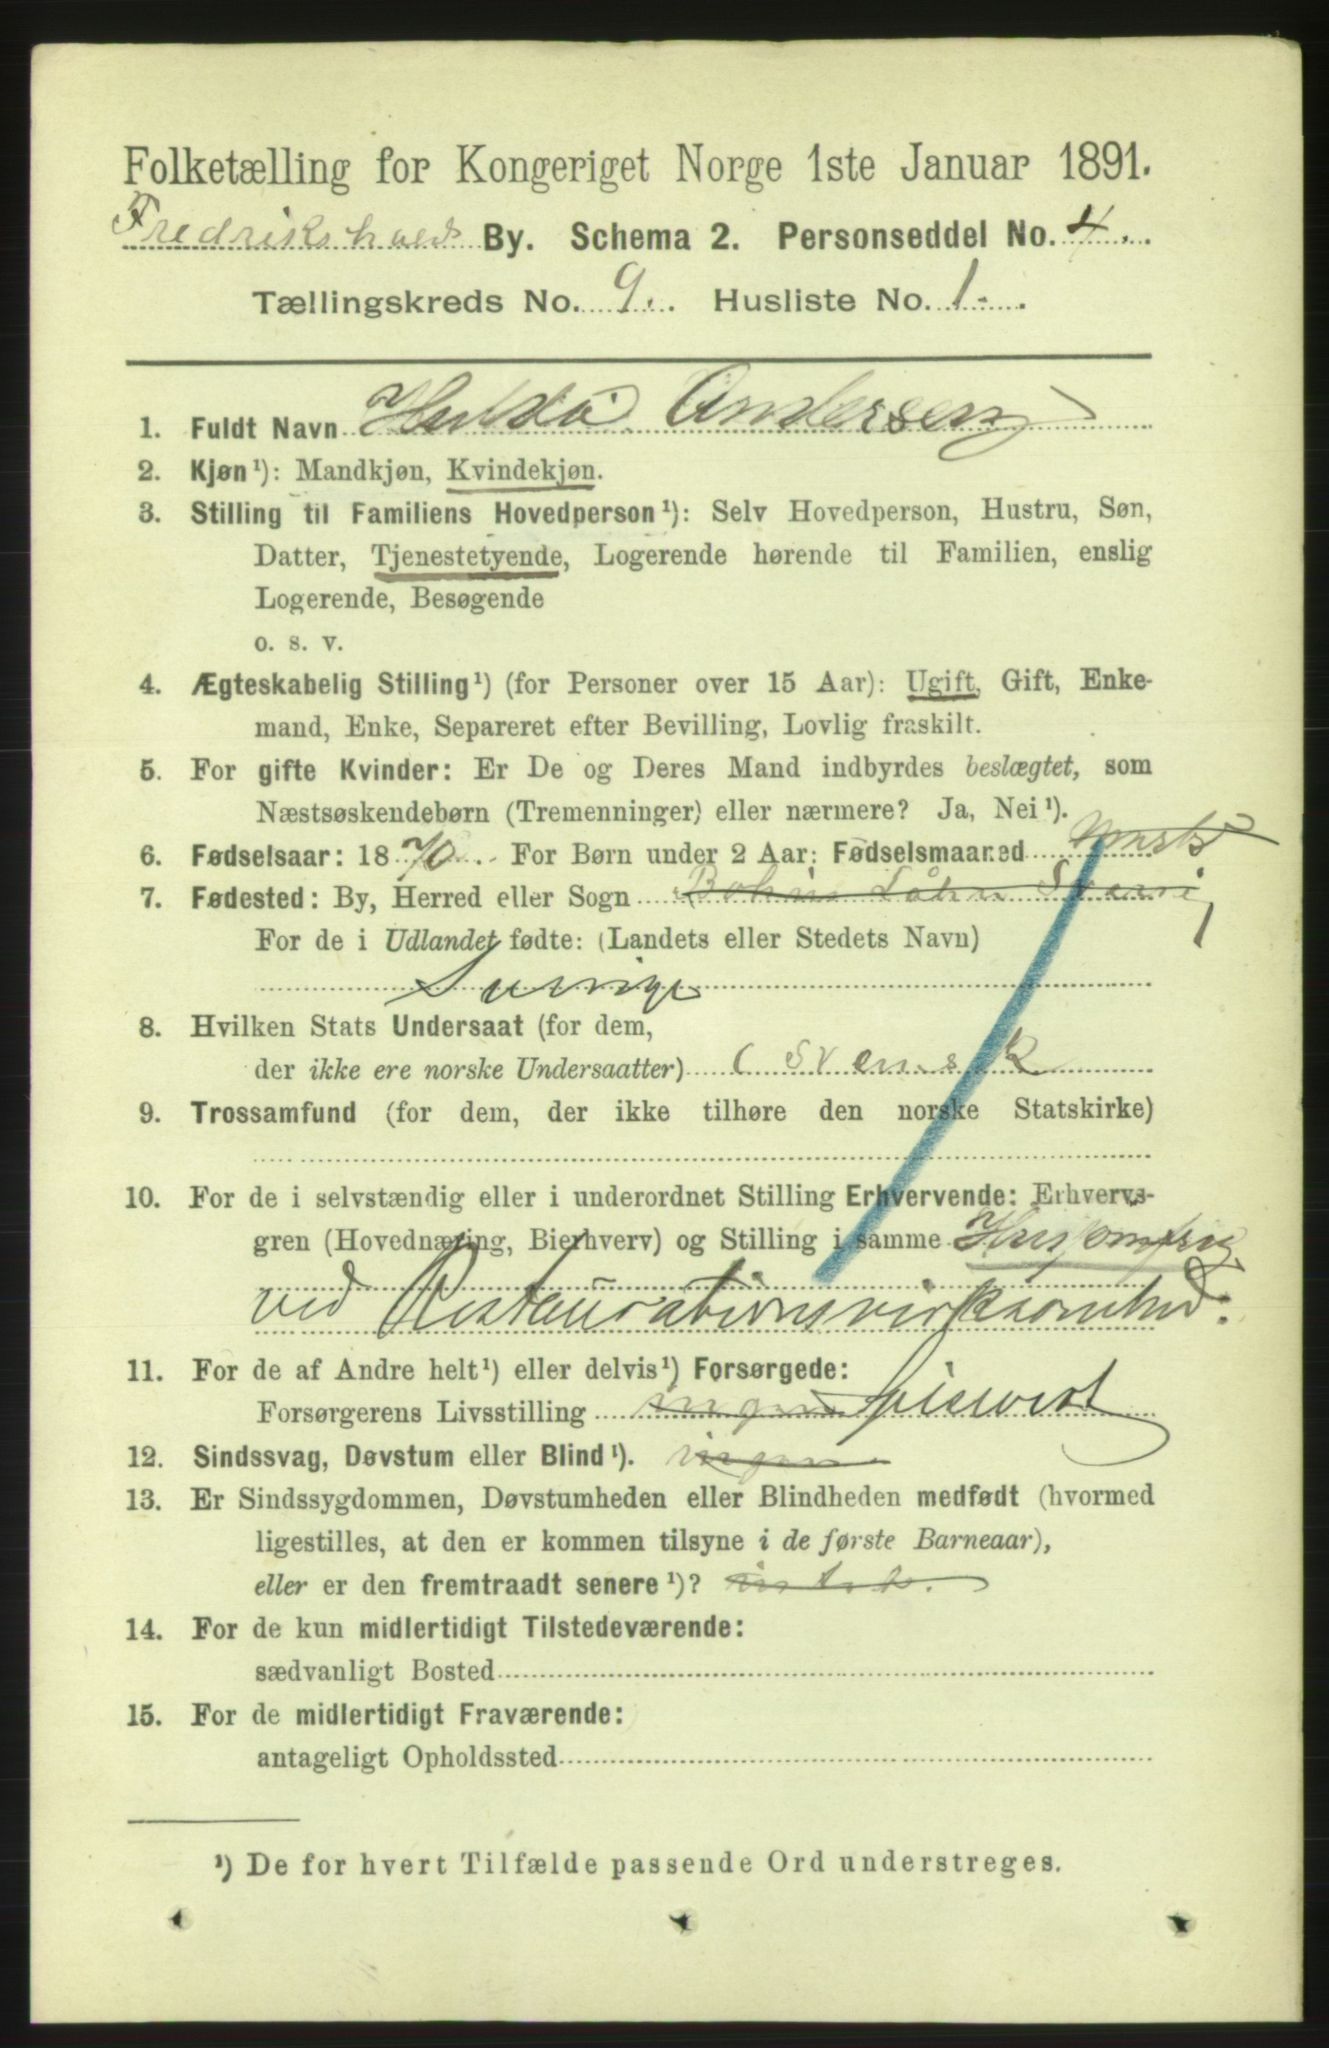 Folketælling for Kongeriget Norge 1ste Januar 1891.
Fredrikshalds By. Schema 2. Personseddel No. 4.
Tællingskreds No. 9. Husliste No. 1.
1. Fuldt Navn Hulda Andersen
2. Kjøn¹): Mandkjøn, Kvindekjøn.
3. Stilling til Familiens Hovedperson¹): Selv Hovedperson, Hustru, Søn,
Datter, Tjenestetyende, Logerende hørende til Familien, enslig
Logerende, Besøgende
o. s. v.
4. Ægteskabelig Stilling¹) (for Personer over 15 Aar): Ugift, Gift, Enke-
mand, Enke, Separeret efter Bevilling, Lovlig fraskilt.
5. For gifte Kvinder: Er De og Deres Mand indbyrdes beslægtet, som
Næstsøskendebørn (Tremenninger) eller nærmere? Ja, Nei¹).
6. Fødselsaar: 1870. For Børn under 2 Aar: Fødselsmaaned
7. Fødested: By, Herred eller Sogn
For de i Udlandet fødte: (Landets eller Stedets Navn)
Sverige
8. Hvilken Stats Undersaat (for dem,
der ikke ere norske Undersaatter) Svensk
9. Trossamfund (for dem, der ikke tilhøre den norske Statskirke)
10. For de i selvstændig eller i underordnet Stilling Erhvervende: Erhvervs-
gren (Hovednæring, Bierhverv) og Stilling i samme Husjomfru
ved Restaurationsvirksomhed.
11. For de af Andre helt¹) eller delvis¹) Forsørgede:
Forsørgerens Livsstilling ingen Spisevært
12. Sindssvag, Døvstum eller Blind¹). ingen
13. Er Sindssygdommen, Døvstumheden eller Blindheden medfødt (hvormed
ligestilles, at den er kommen tilsyne i de første Barneaar),
eller er den fremtraadt senere¹)?
14. For de kun midlertidigt Tilstedeværende:
sædvanligt Bosted
15. For de midlertidigt Fraværende:
antageligt Opholdssted
¹) De for hvert Tilfælde passende Ord understreges.